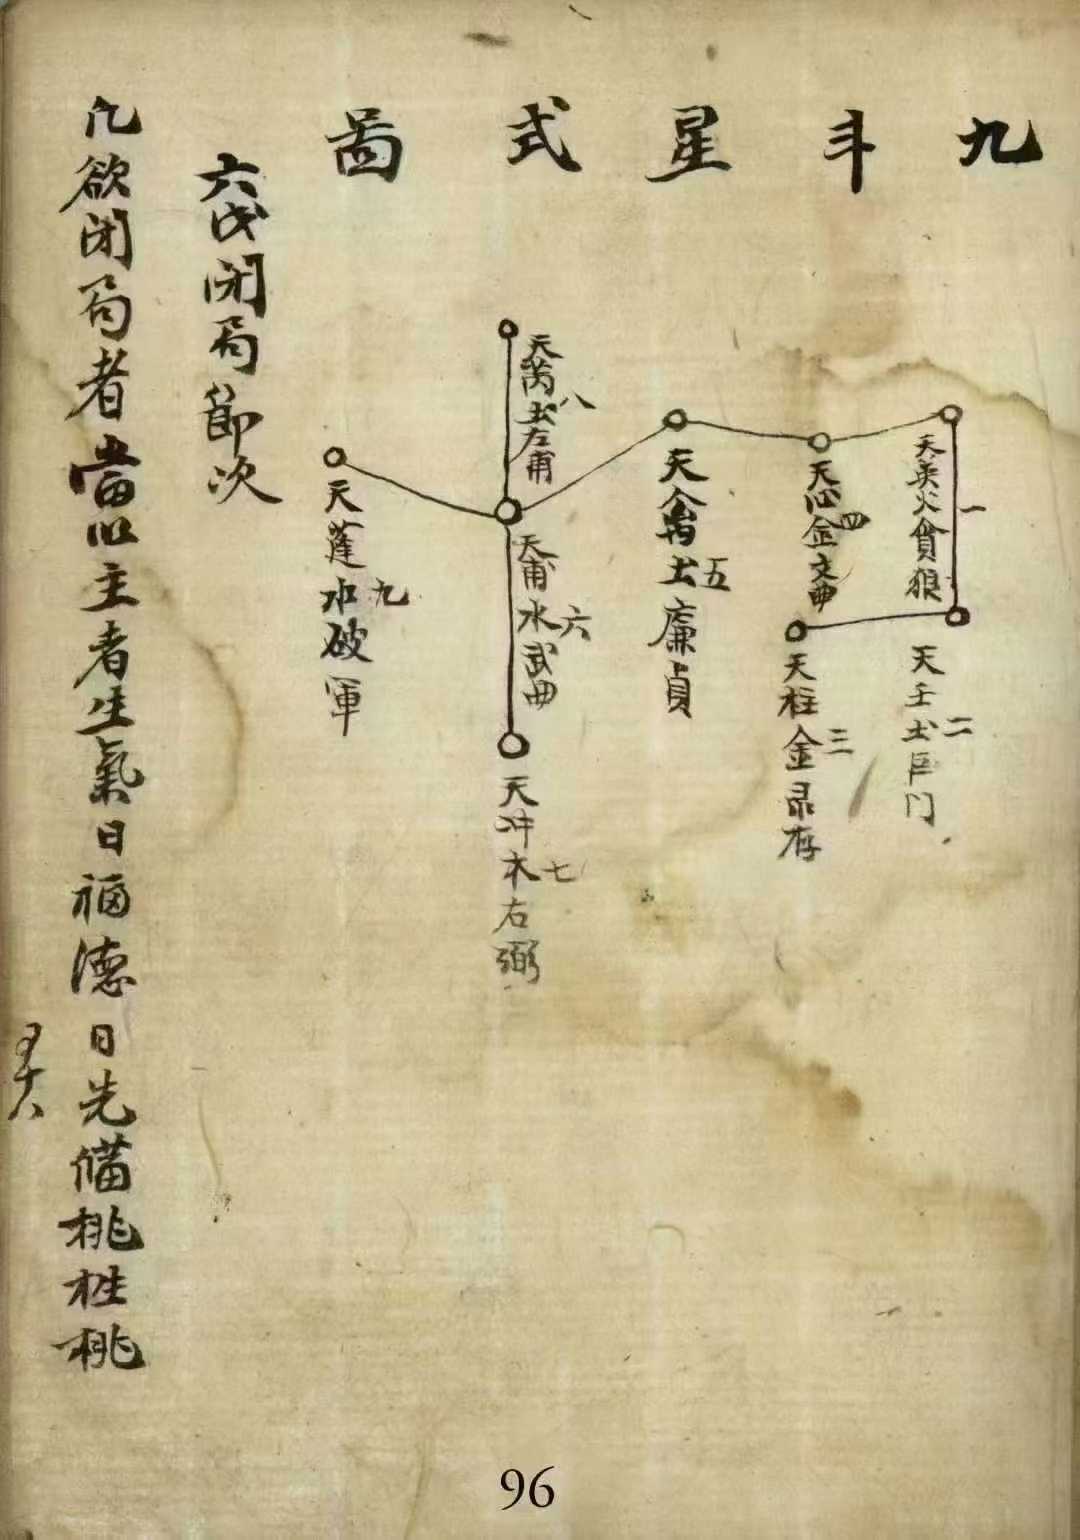 九斗星式畐
天英火貪狼
一
天壬土巨门
二
天柱金录存
三
天心金文曲
四
天禽土廉貞
五
天甫水武曲
六
天冲木右弼
七
天芮土左甫
八
天蓬水破軍
九
六戊闭局節次
凢欲闭局者當以主者生氣日福德日先俻桃桩桃
十八
96